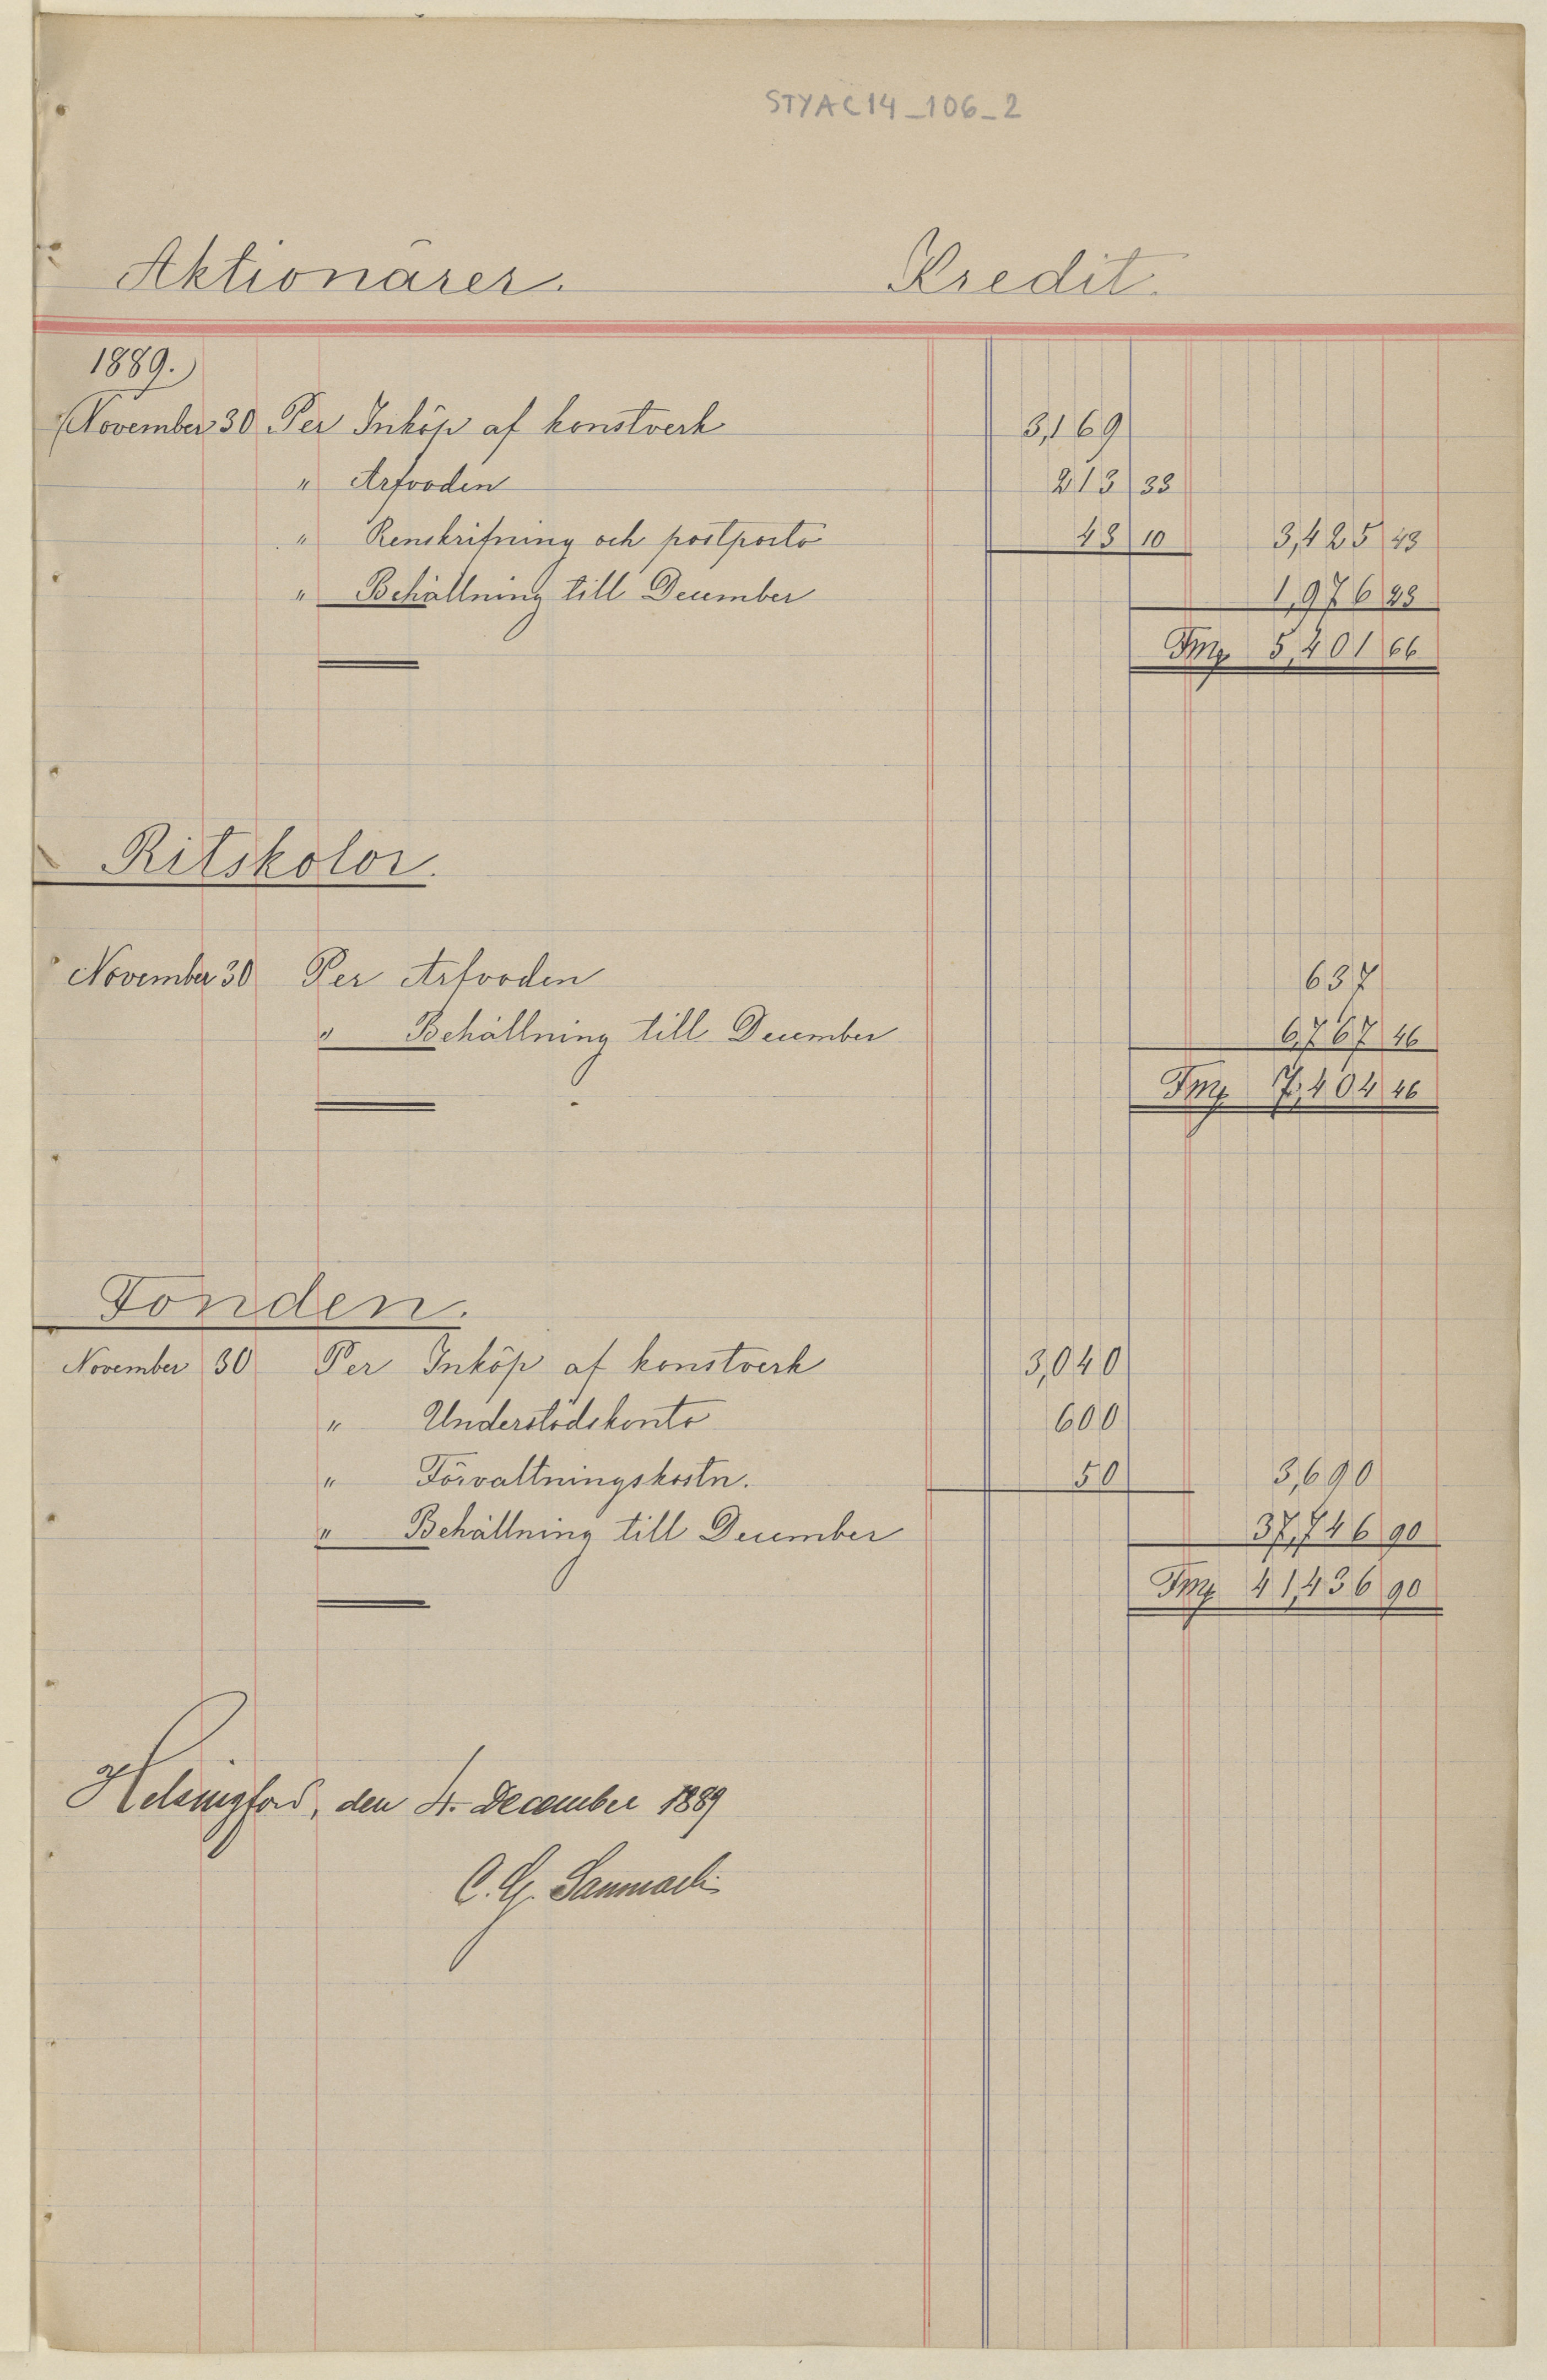 STYAC14_106_2
Aktionärer. Kredit.
1889.
November 30 Per Inköp af konstverk 3,169
" Arfvoden 213 33
" Renskrifning och postporto 43 10 3,425 43
" Behållning till December 1,976 23
Fmk 5,401 66
Ritskolor.
November 30 Per Arfvoden 637
" Behållning till December 6,767 46
Fmk 7,404 46
Fonden.
November 30 Per Inköp af konstverk 3,040
" Understödskonto 600
" Förvaltningskostn. 50 3,690
" Behållning till December 37,746 90
Fmk 41,436 90
Helsingfors, den 4. December 1889
C. G. Sanmark